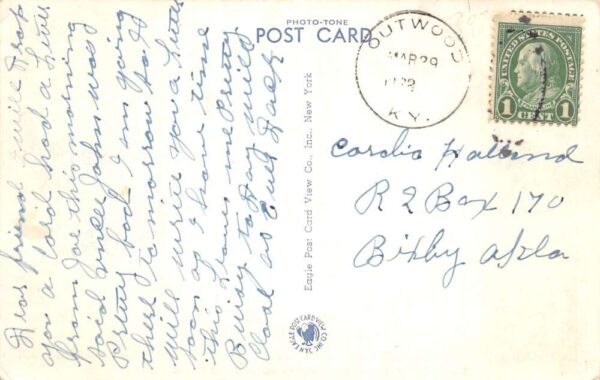 Dear friend I will drop
you a card had a letter
from Joe this morning
said uncle John was
Pretty bad I am going
there tomorrow so I'll
will write you a letter
soon as I have time
this leaves me Pretty
to day will
Close as Ever Jack
PHOTO-TONE
POST CARD
Eagle Post Card View Co., Inc., New York
EAGLE POST CARD VIEW CO. INC. N.Y.
OUTWOOD
MAR 29
K.Y.
UNITED STATES POSTAGE
FRANKLIN
1 CENT 1
Cordia Holland
R 2 Box 170
Bixby Okla